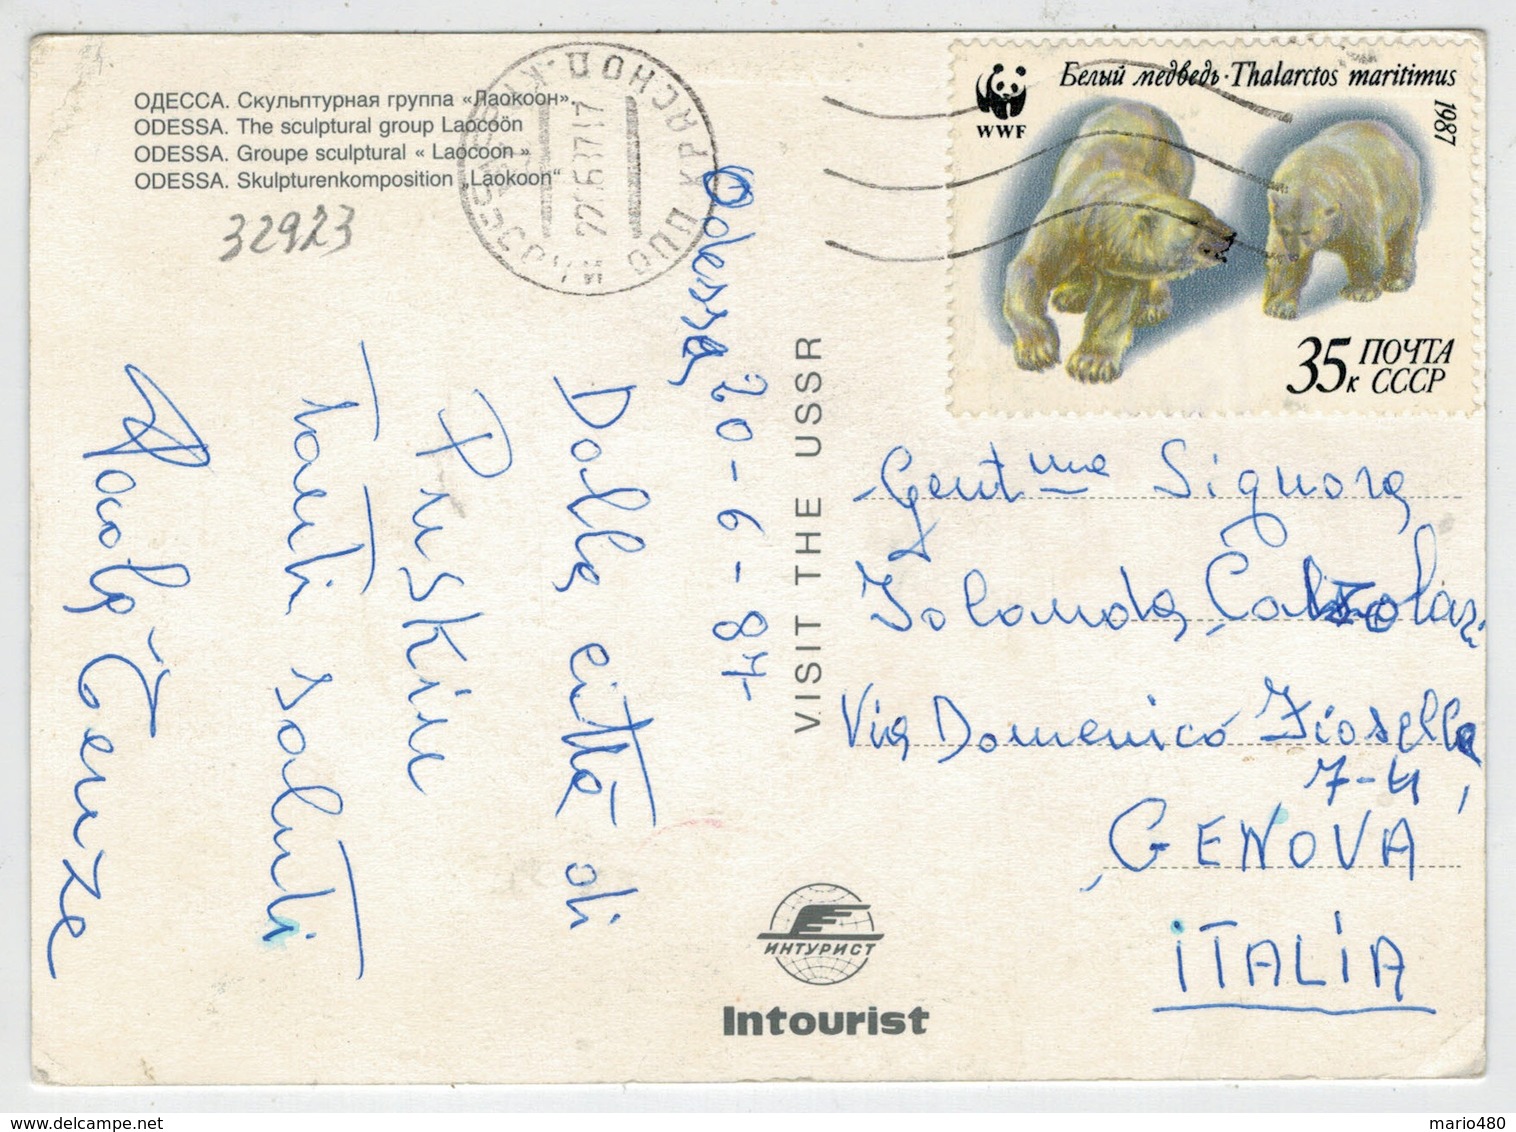 ОДЕССА. Скульптурная группа «Лаокоон».
ODESSA. The sculptural group Laocoön
ODESSA. Groupe sculptural « Laocoon »
ODESSA. Skulpturenkomposition „Laokoon“
32923
22.6.87 17
Белый медведь · Thalarctos maritimus
1987
WWF
35 к ПОЧТА
СССР
Odessa 20-6-87-
Dalla città di
Puskin
Tanti saluti
VISIT THE USSR
Gent.ma Signora
Iolanda
Via Domenico
7-4
GENOVA
ITALIA
ИНТУРИСТ
Intourist
mario480